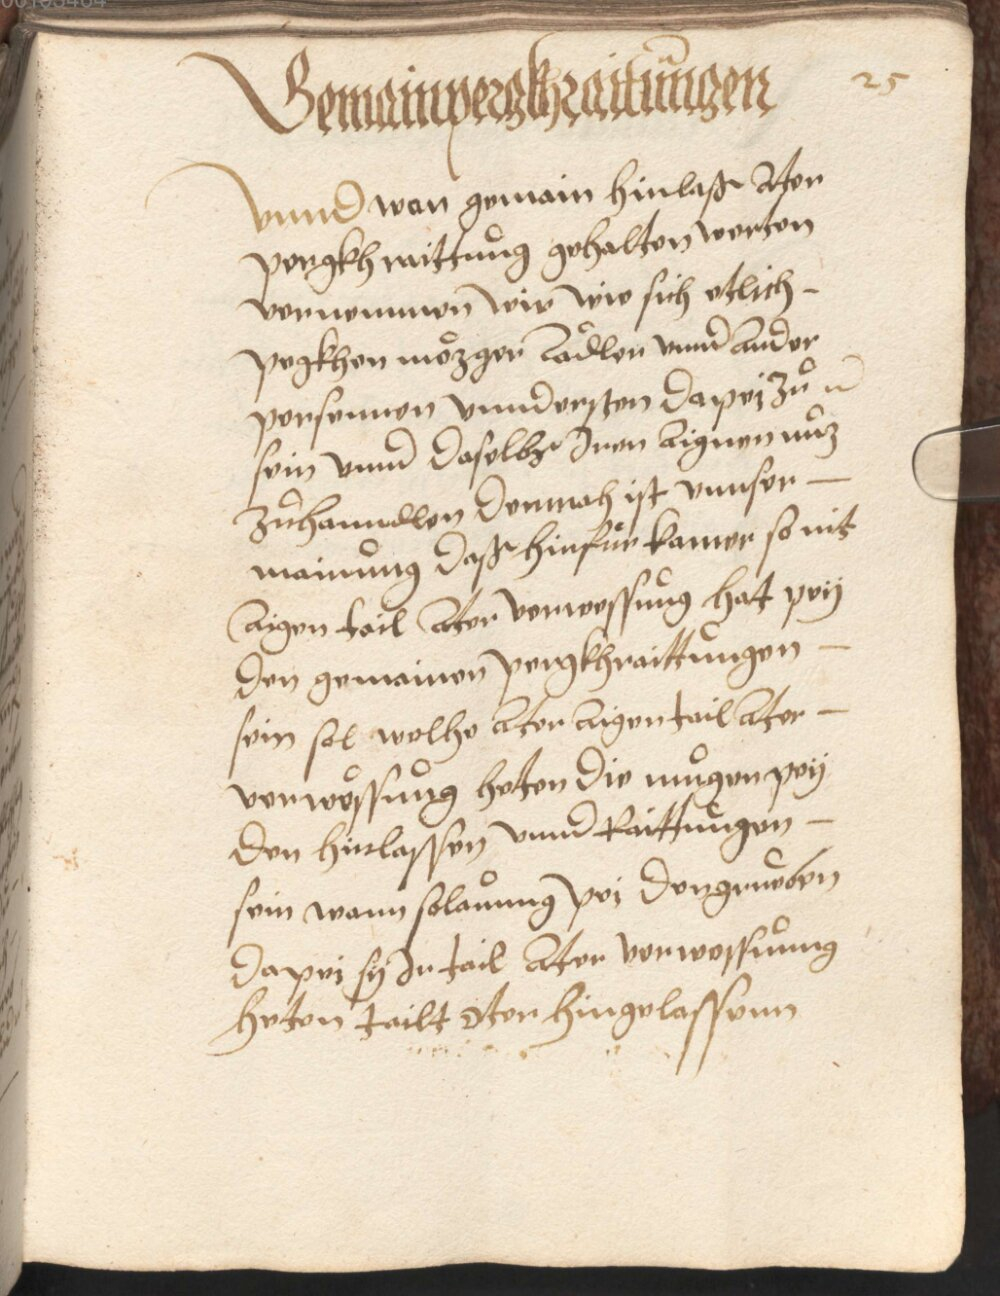 Gemain pergkhraitungen
25
Vnnd wan gemain hinlaß oder
pergkhraittung gehalten werden
vernemmen wir wie sich etlich
pegkhen metzger ködler vnnd ander
personnen vnndersten dapej zu
sein vnnd daselbst Iren aignen nutz
zuhanndlen demnach ist vnnser
mainung daß hinfür kainer so nit
aigen tail oder verwesung hat peÿ
den gemainen pergkhraittungen
sein sol welhe oder aigen tail oder
verwesung heten die mugen peÿ
den hinlassen vnnd Raittungen
sein wann solaung pej den grueben
dapej sÿ Ir tail oder verwesung
heten tailt oder hingelassenn